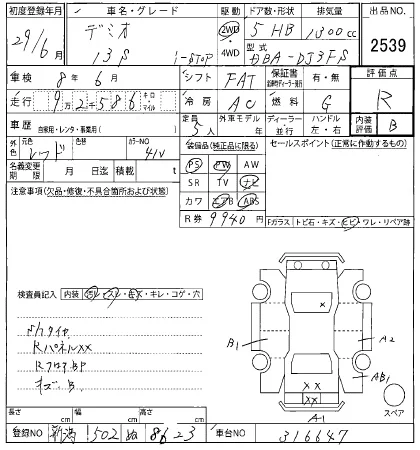 初度登録年月 車名・グレード 駆動 ドア数・形状 排気量 出品NO.
29/6月 デミオ 2WD 5 HB 1300cc 2539
13S i-STOP ・4WD 型式 DBA-DJ3FS
車検 8年 6月 シフト FAT 保証書 有・無 評価点
走行 9万2千586 キロ マイル 冷房 AC 燃料 G R
車歴 自家用・レンタ・事業用( ) 定員 5人 外車モデル 年 ディーラー・並行 ハンドル 左・右 内装評価 B
外色 元色 レッド 色替 カラーNO 41V 装備品(純正品に限る) セールスポイント(正常に作動するもの)
名義変更期限 月 日迄 積載 t PS PW AW
注意事項(欠品・修復・不具合箇所および状態) SR TV ナビ
カワ エアB ABS
R券 9940円 Fガラス トビ石・キズ・ヒビ・ワレ・リペア跡
検査員記入 内装 汚レ・スレ・キズ・キレ・コゲ・穴
RパネルXX
RフロアBP
キズ B
B1 A2
AB1
X
X X
XX
A1
スペア
長さ cm 幅 cm 高さ cm
登録NO 新潟 502 ぬ 8623 車台NO 316647